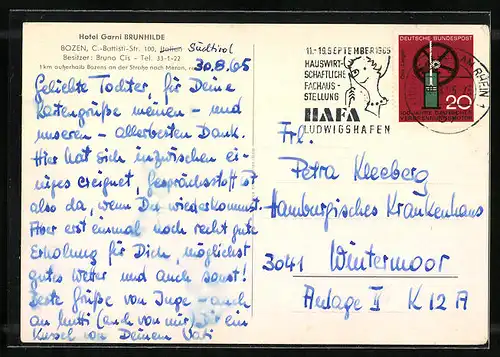 Hotel Garni BRUNHILDE
BOZEN, C.-Battisti-Str. 100, Italien Südtirol
Besitzer: Bruno Cis - Tel. 33-1-22
1 km außerhalb Bozens an der Straße nach Meran,
30.8.65
Geliebte Tochter, für Deine
Kartengrüße meinen - und
unseren - allerbesten Dank.
Hier hat sich inzwischen ei-
niges ereignet, Gesprächsstoff ist
also da, wenn Du wiederkommst.
Aber erst einmal noch recht gute
Erholung für Dich, möglichst
gutes Wetter und auch sonst!
Beste Grüße von Inge - auch
an Mutti (auch von mir) Dir ein
Kussel von Deinem Vati
11.-19.SEPTEMBER 1965
HAUSWIRT-
SCHAFTLICHE
FACHAUS-
STELLUNG
HAFA
LUDWIGSHAFEN
AM RHEIN 1
DEUTSCHE BUNDESPOST
20
Frl.
Petra Kleeberg
Hamburgisches Krankenhaus
3041 Wintermoor
Anlage II K 12 A